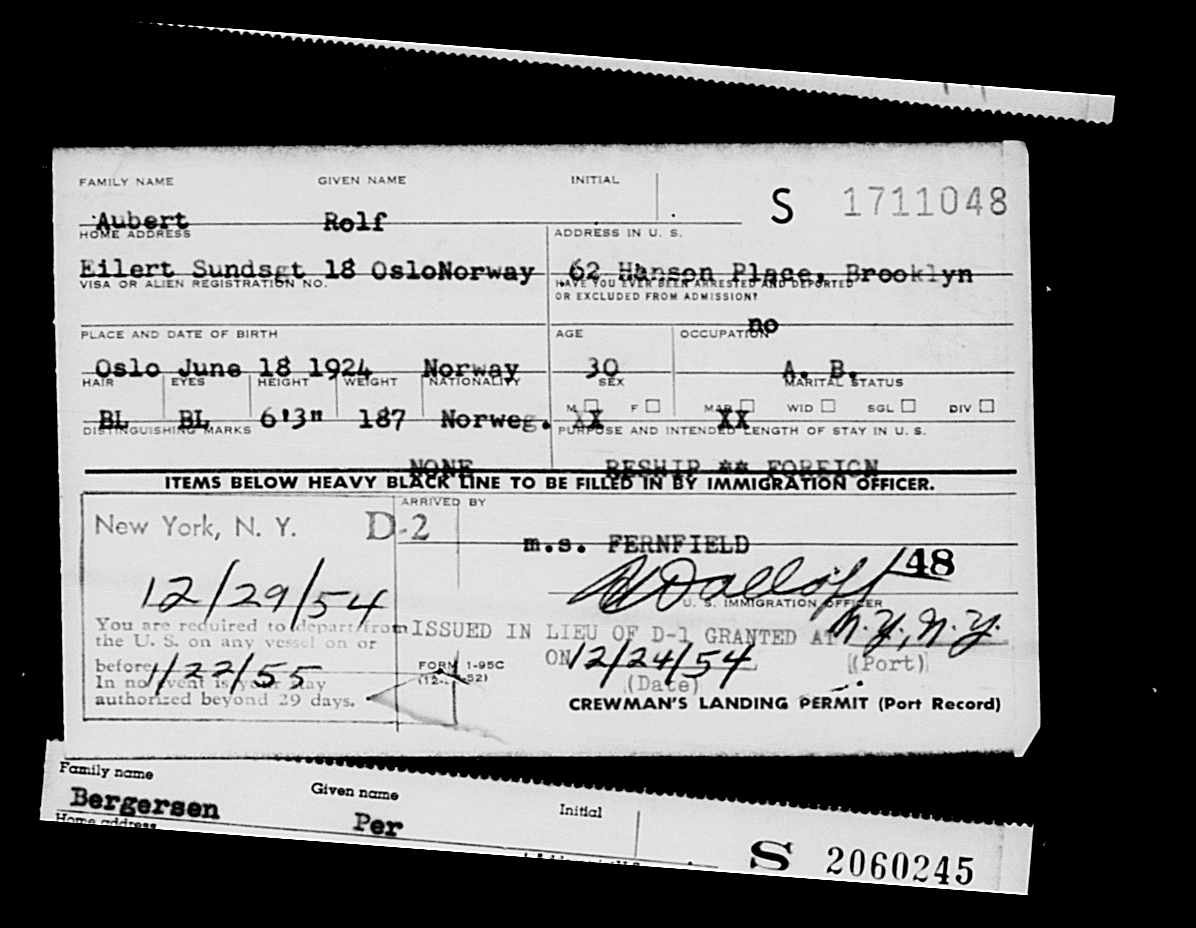 FAMILY NAME GIVEN NAME INITIAL
S 1711048
Aubert Rolf
HOME ADDRESS ADDRESS IN U. S.
Eilert Sundsgt 18 OsloNorway 62 Hanson Place, Brooklyn
VISA OR ALIEN REGISTRATION NO. HAVE YOU EVER BEEN ARRESTED AND DEPORTED
OR EXCLUDED FROM ADMISSION?
no
PLACE AND DATE OF BIRTH AGE OCCUPATION
Oslo June 18 1924 Norway 30 A. B.
HAIR EYES HEIGHT WEIGHT NATIONALITY SEX MARITAL STATUS
M F MAR WID SGL DIV
BL BL 6'3" 187 Norweg. XX XX
DISTINGUISHING MARKS PURPOSE AND INTENDED LENGTH OF STAY IN U. S.
NONE RESHIP ** FOREIGN
ITEMS BELOW HEAVY BLACK LINE TO BE FILLED IN BY IMMIGRATION OFFICER.
ARRIVED BY
New York, N. Y. D-2
m.s. FERNFIELD
48
12/29/54
U. S. IMMIGRATION OFFICER
You are required to depart from ISSUED IN LIEU OF D-1 GRANTED AT N.Y., N.Y.
the U. S. on any vessel on or
before 1/22/55 FORM 1-95C ON 12/24/54 (Port)
In no event is your stay (12- -52) (Date)
authorized beyond 29 days.
CREWMAN'S LANDING PERMIT (Port Record)
Family name Given name Initial
Bergersen Per
Home address
S 2060245